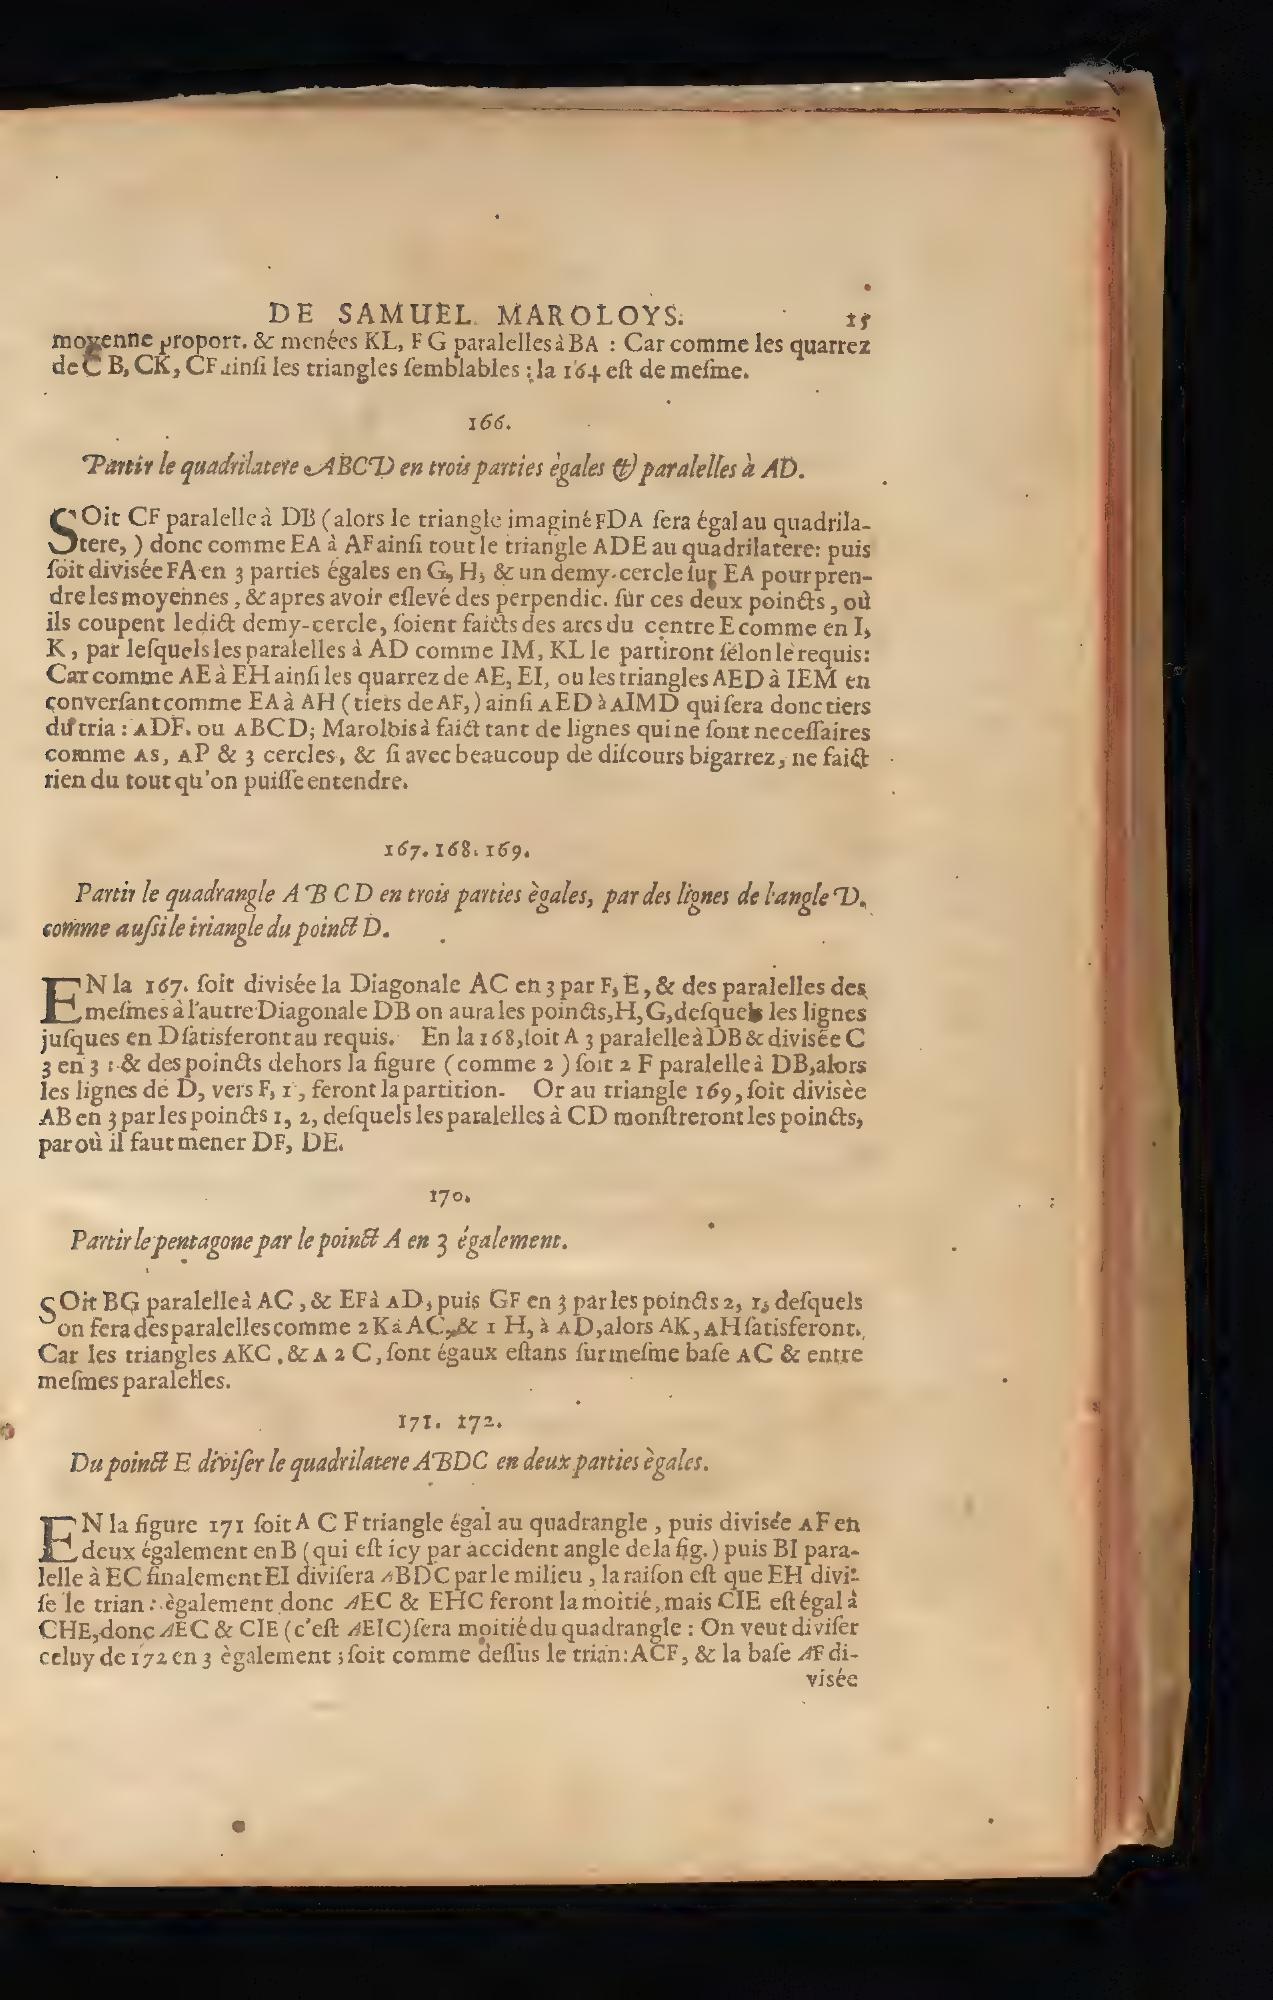 DE SAMUEL MAROLOYS. 15
moyenne proport. & menées KL, FG paralelles à BA : Car comme les quarrez
de C B, CK, CF ainſi les triangles ſemblables ; la 164 eſt de meſme.
166.
Partir le quadrilatere ABCD en trois parties ègales & paralelles à AD.
SOit CF paralelle à DB (alors le triangle imaginé FDA ſera égal au quadrila-
tere, ) donc comme EA à AF ainſi tout le triangle ADE au quadrilatere: puis
ſoit divisée FA en 3 parties égales en G, H, & un demy-cercle ſur EA pour pren-
dre les moyennes, & apres avoir eſlevé des perpendic. ſur ces deux poincts, où
ils coupent ledict demy-cercle, ſoient faicts des arcs du centre E comme en I,
K, par leſquels les paralelles à AD comme IM, KL le partiront ſelon le requis:
Car comme AE à EH ainſi les quarrez de AE, EI, ou les triangles AED à IEM en
converſant comme EA à AH (tiers de AF,) ainſi AED à AIMD qui ſera donc tiers
du tria : ADF. ou ABCD; Marolois à faict tant de lignes qui ne ſont neceſſaires
comme AS, AP & 3 cercles, & ſi avec beaucoup de diſcours bigarrez, ne faict
rien du tout qu'on puiſſe entendre.
167. 168. 169.
Partir le quadrangle A B C D en trois parties ègales, par des lignes de l'angle D,
comme auſsi le triangle du poinct D.
EN la 167. ſoit divisée la Diagonale AC en 3 par F, E, & des paralelles des
meſmes à l'autre Diagonale DB on aura les poincts, H, G, deſquels les lignes
juſques en D ſatisferont au requis. En la 168, ſoit A 3 paralelle à DB & divisée C
3 en 3 : & des poincts dehors la figure (comme 2 ) ſoit 2 F paralelle à DB, alors
les lignes de D, vers F, 1, feront la partition. Or au triangle 169, ſoit divisèe
AB en 3 par les poincts 1, 2, deſquels les paralelles à CD monſtreront les poincts,
par où il faut mener DF, DE.
170.
Partir le pentagone par le poinct A en 3 également.
SOit BG paralelle à AC, & EF à AD, puis GF en 3 par les poincts 2, 1, deſquels
on fera des paralelles comme 2 K à AC, & 1 H, à AD, alors AK, AH ſatisferont.
Car les triangles AKC, & A 2 C, ſont égaux eſtans ſur meſme baſe AC & entre
meſmes paralelles.
171. 172.
Du poinct E diviſer le quadrilatere ABDC en deux parties ègales.
EN la figure 171 ſoit A C F triangle égal au quadrangle, puis divisée AF en
deux également en B (qui eſt icy par accident angle de la fig.) puis BI para-
lelle à EC finalement EI diviſera ABDC par le milieu, la raiſon eſt que EH divi-
ſe le trian : ègalement donc AEC & EHC feront la moitié, mais CIE eſt égal à
CHE, donc AEC & CIE (c'eſt AEIC) ſera moitié du quadrangle : On veut diviſer
celuy de 172 en 3 ègalement ; ſoit comme deſſus le trian: ACF, & la baſe AF di-
visée